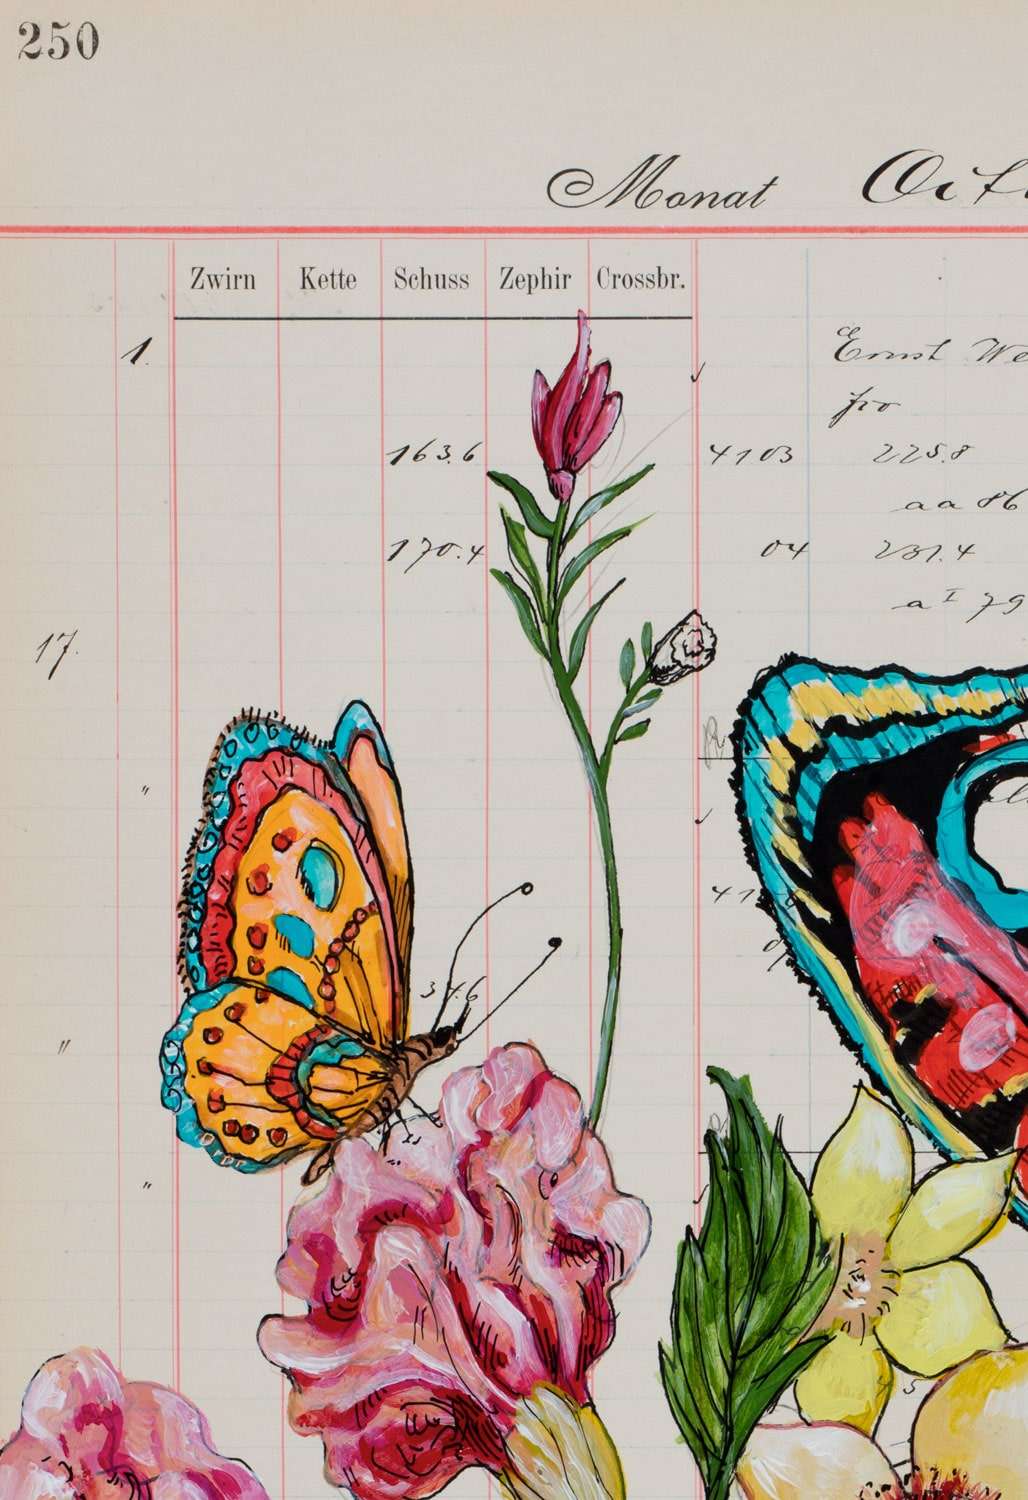 250
Monat
Zwirn Kette Schuss Zephir Crossbr.
1.
Ernst We
pro
163.6 4103 225.8
aa 86
170.4 04 231.4
a I 79
17.
"
"
"